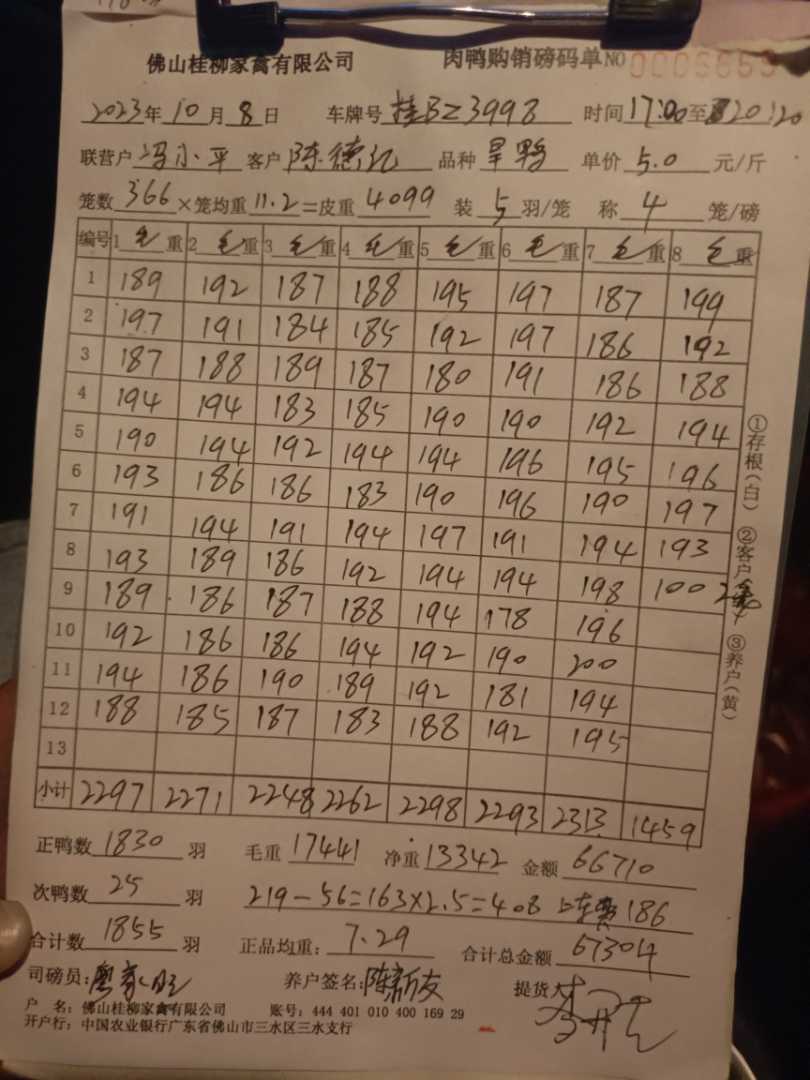 佛山桂柳家禽有限公司 肉鸭购销磅码单 NO
2023年10月8日 车牌号 桂BZ3998 时间17:00至20:20
联营户 冯小平 客户 陈德记 品种 旱鸭 单价 5.0 元/斤
笼数 366 ×笼均重 11.2 =皮重 4099 装 5 羽/笼 称 4 笼/磅
编号 1 毛 重 2 毛 重 3 毛 重 4 毛 重 5 毛 重 6 毛 重 7 毛 重 8 毛 重
1 189 192 187 188 195 197 187 199
2 197 191 184 185 192 197 186 192
3 187 188 189 187 180 191 186 188
4 194 194 183 185 190 190 192 194
5 190 194 192 194 194 196 195 196
6 193 186 186 183 190 196 190 197
7 191 194 191 194 197 191 194 193
8 193 189 186 192 194 194 198 100
9 189 186 187 188 194 178 196
10 192 186 186 194 192 190 200
11 194 186 190 189 192 181 194
12 188 185 187 183 188 192 195
13
小计 2297 2271 2248 2262 2298 2293 2313 1459
①存根(白) ②客户 ③养户(黄)
正鸭数 1830 羽 毛重 17441 净重 13342 金额 66710
次鸭数 25 羽 219-56=163×2.5=408 上车费186
合计数 1855 羽 正品均重: 7.29 合计总金额 67304
司磅员: 养户签名: 陈新友 提货人
户 名: 佛山桂柳家禽有限公司 账号: 444 401 010 400 169 29
开户行: 中国农业银行广东省佛山市三水区三水支行